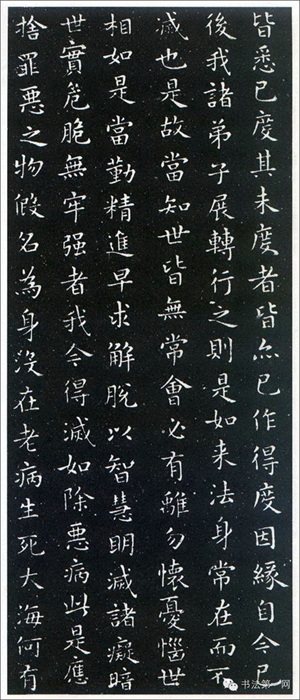 皆悉已度其未度者皆亦已作得度因緣自今已
後我諸弟子展轉行之則是如来法身常在而不
滅也是故當知世皆無常會必有離勿懷憂惱世
相如是當勤精進早求解脫以智慧明滅諸癡暗
世實危脆無牢强者我今得滅如除惡病此是應
捨罪惡之物假名為身沒在老病生死大海何有
书法第一网